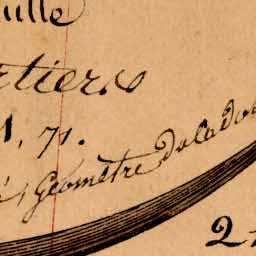 uille
rtiers
1, 71.
é, Géomètre Du Cado
2